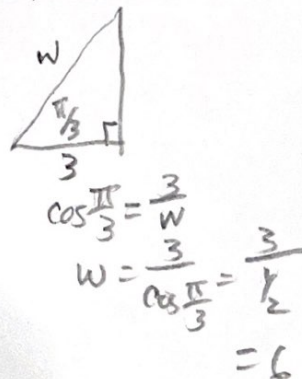 w
π/3
3
cos π/3 = 3/w
w = 3/cos π/3 = 3/½
= 6